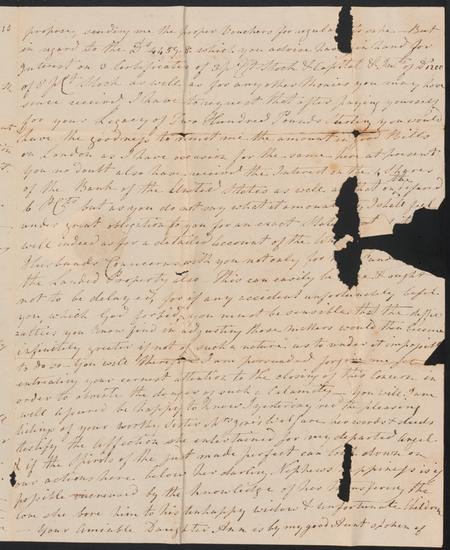 propose, sending me the proper Vouchers for regular — But
in regard to the Ds 4459.8 which you advise have in hand for
Interest on 3 Certificates of 3 p Ct Stock & Capital & Int. of
of 8 p Ct Stock as well as for any other Monies you may have
since received I have to request that after paying yourself
for your Legacy of Two Hundred Pounds Sterling you would
have the goodness to remit me the amount in Bills
on London as I have occasion for the same here at present
you no doubt also have received the Interest on the Shares
of the Bank of the United States as well as that on
6 P Cts but as you do not say what it amounts I shall feel
under great obligation to you for an exact
well indeed as for a detailed account of the
Husbands Concerns with you not only for
the Landed Property also. This can easily be & ought
not to be delayed, for if any accident unfortunately befel
you, which God forbid, you must be sensible that the
culties you now find in adjusting those matters would then become
infinitely greater if not of such a nature as to render it
to do so — You will therefore I am persuaded forgive me for
entreating your earnest attention to the closing of this Concern in
order to obviate the danger of such a Calamity — You will I am
well assured be happy to know I yesterday rec the pleasing
tidings of your worthy Sister welfare her words & deeds
testify the affection she entertained for my departed angel
& if the Spirits of the just made perfect can look down on
our actions here below her darling Nephews happiness is if
possible increased by the knowledge of her transferring the
love she bore him to his unhappy widow & unfortunate children
— Your Amiable Daughter Ann is by my good Aunt spoken of